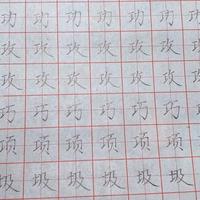 功功功功功功功
攻攻攻攻攻攻攻
攻攻攻攻攻攻攻
巧巧巧巧巧巧
项项项项项项
圾圾圾圾圾圾